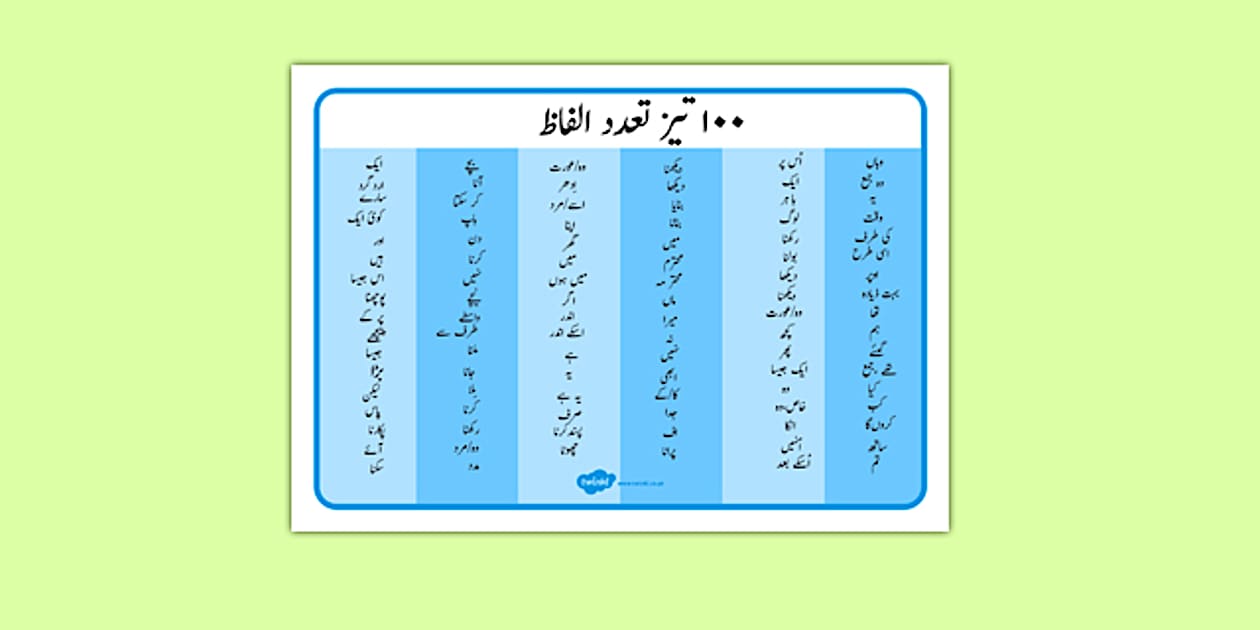 ۱۰۰ تیز تعدد الفاظ
وہاں
وہ جمع
یہ
وقت
کی طرف
اسی طرح
اوپر
بہت ذیادہ
تھا
ہم
گئے
تھے ،جمع
کیا
کب
کروں گا
ساتھ
تم
اُس پر
ایک
باہر
لوگ
رکھنا
بولنا
دیکھا
دیکھنا
وہ/عورت
کچھ
پھر
ایک جیسا
وہ
خاص،وہ
انکا
اُنہیں
اُسکے بعد
دیکھنا
دیکھا
بنایا
بنانا
میں
محترم
محترمہ
ماں
میرا
نہ
نہیں
ابھی
کا/کے
جدا
اف
پرانا
وہ/عورت
اِدھر
اسے/مرد
اپنا
گھر
میں
میں ہوں
اگر
اندر
اسکے اندر
ہے
یہ
یہ ہے
صرف
پسند کرنا
چھوٹا
بچے
آنا
کر سکتا
باپ
دن
کرنا
نہیں
نیچے
واسطے
طرف سے
ملنا
جانا
بلا
کرنا
رکھنا
وہ/مرد
مدد
ایک
ارد گرد
سارے
کوئی ایک
اور
ہیں
اس جیسا
پوچھنا
پر کے
پیچھے
جیسا
بڑا
لیکن
پاس
پکارنا
آئے
سکتا
twinkl
www.twinkl.co.uk